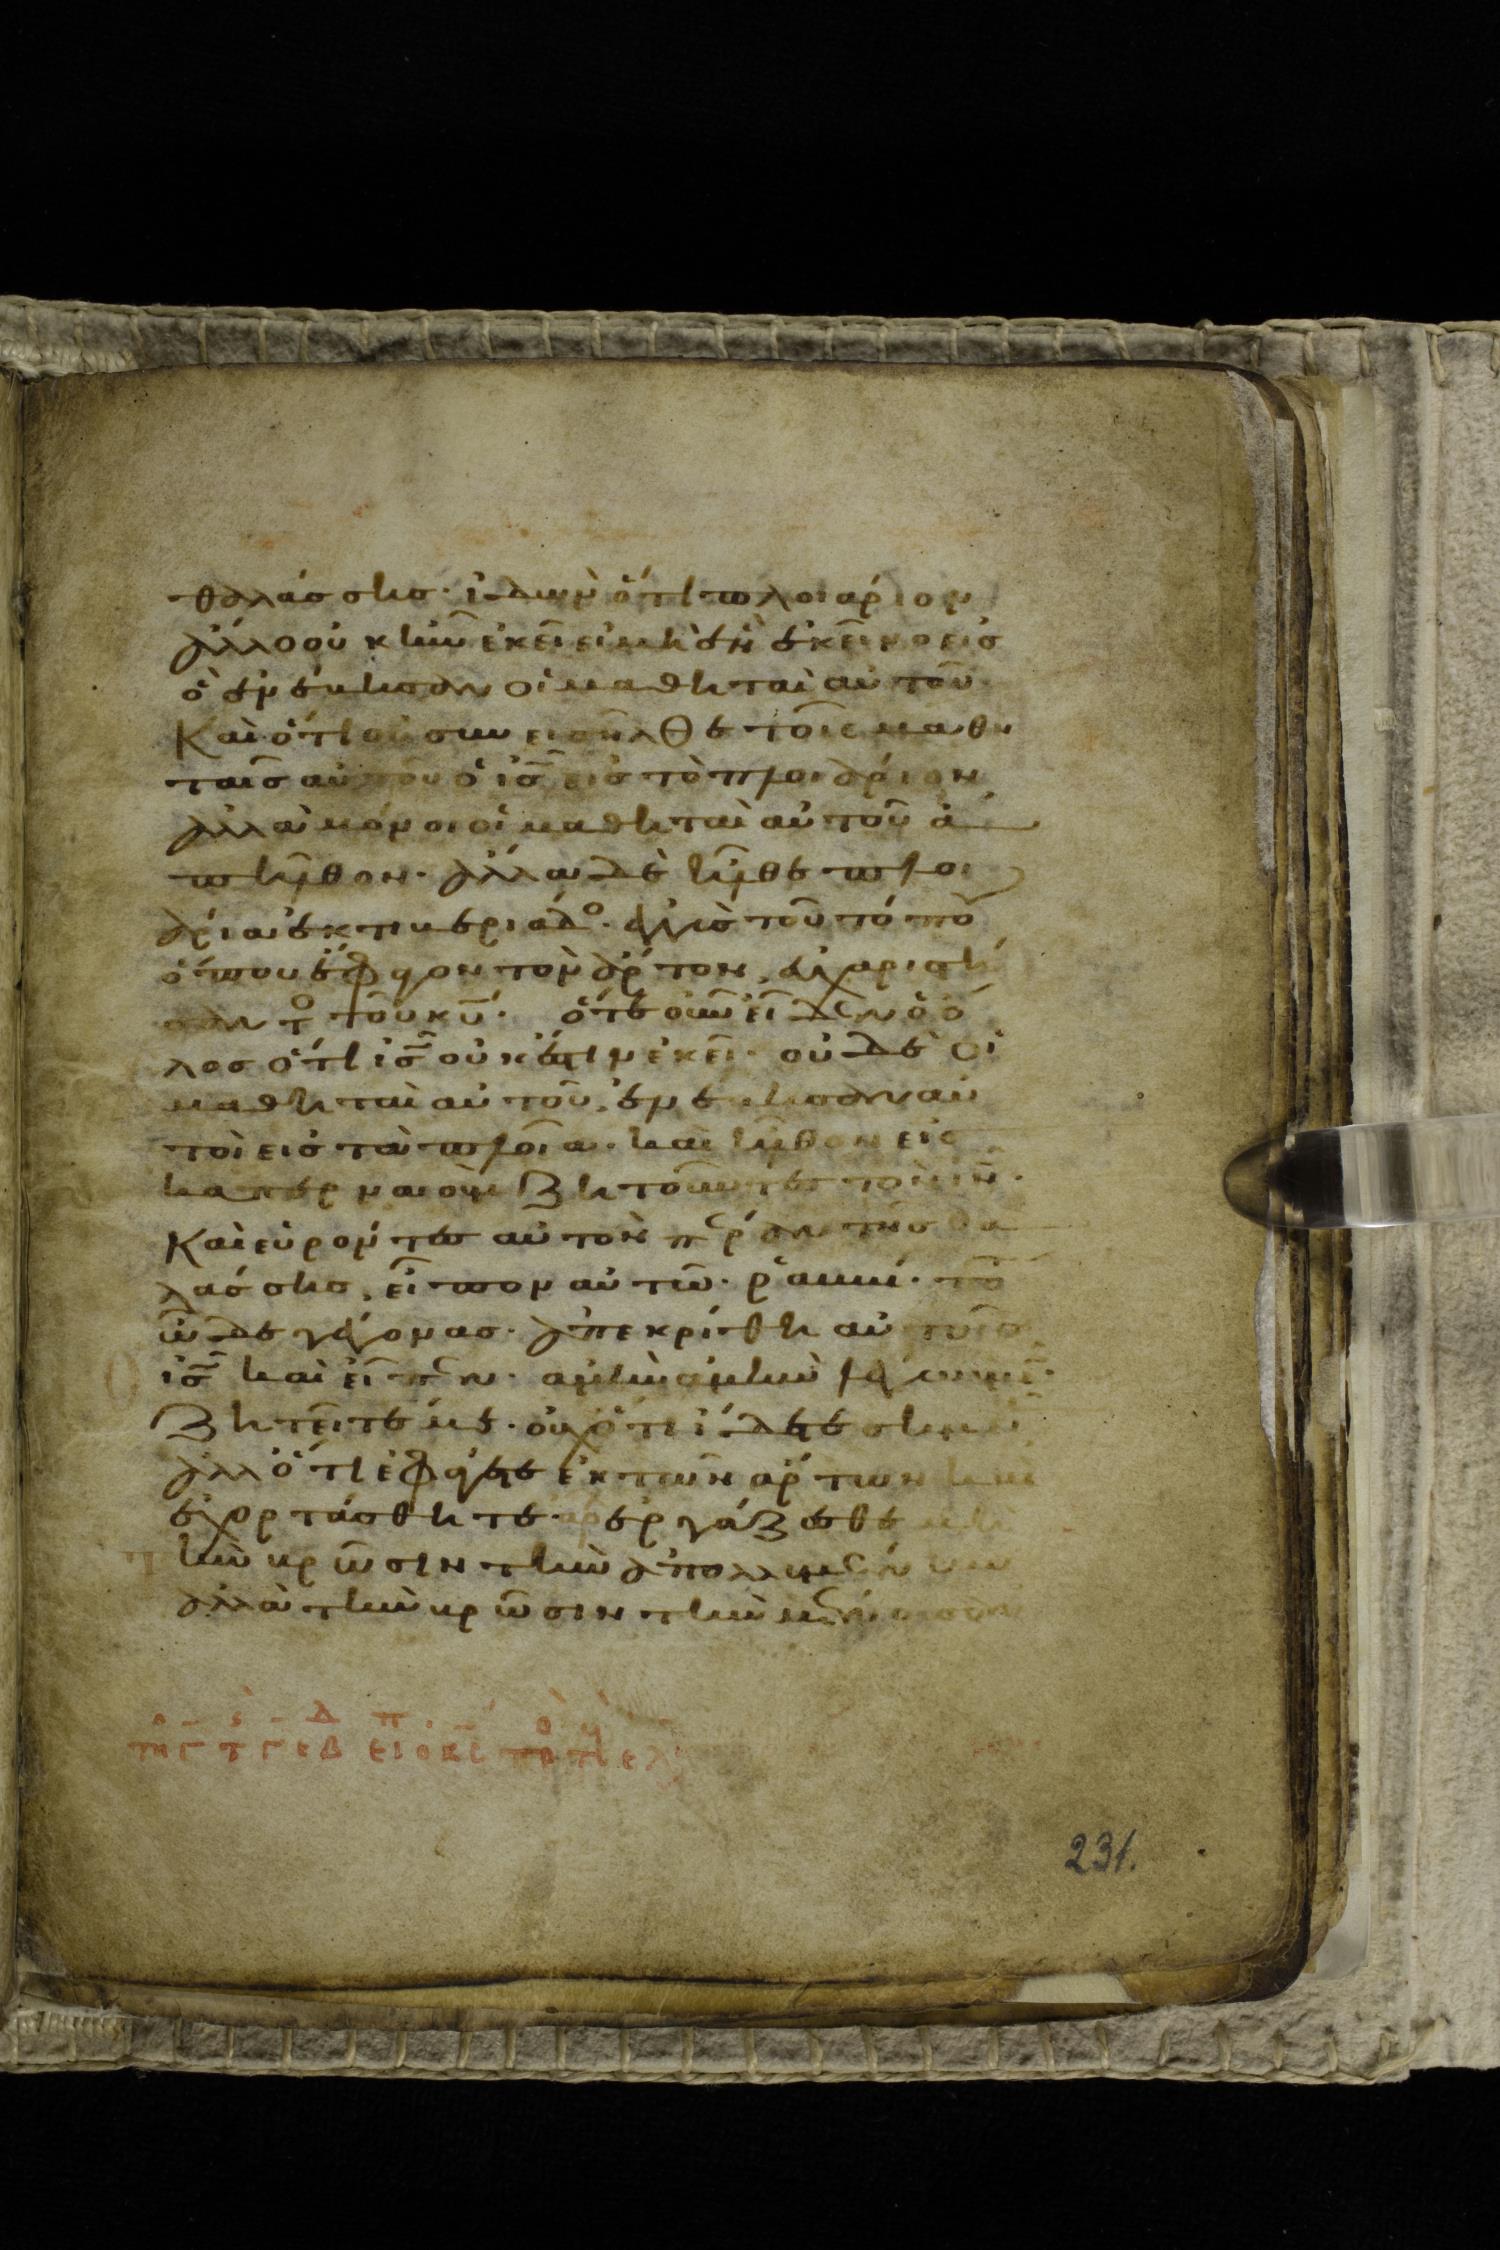 θαλάσσης· ἰδὼν ὅτι πλοιάριον
ἄλλο οὐκ ἦν ἐκεῖ εἰ μὴ ἓν ἐκεῖνο εἰς
ὃ ἐνέβησαν οἱ μαθηταὶ αὐτοῦ·
Καὶ ὅτι οὐ συνεισῆλθε τοῖς μαθη
ταῖς αὐτοῦ ὁ ἰς̅ εἰς τὸ πλοιάριον
ἀλλὰ μόνοι οἱ μαθηταὶ αὐτοῦ ἀ
πῆλθον· ἄλλα δὲ ἦλθε πλοι
άρια ἐκ τιβεριάδο· ἐγγὺς τοῦ τόπου
ὅπου ἔφαγον τὸν ἄρτον, εὐχαριστή
σαντο τοῦ κυ̅· ὅτε οὖν εἶδεν ὁ ὄ
λος ὅτι ἰς̅ οὐκ ἔστιν ἐκεῖ· οὐδὲ οἱ
μαθηταὶ αὐτοῦ, ἐνέβησαν αὐ
τοὶ εἰς τὰ πλοῖα· καὶ ἦλθον εἰς
καπερναοὺμ ζητοῦντες τὸν ἰν̅·
Καὶ εὑρόντες αὐτὸν πέραν τῆς θα
λάσσης, εἶπον αὐτῷ· ῥαββί· πό
ὧδε γέγονας· ἀπεκρίθη αὐτοῖς
ἰς̅ καὶ εἶπεν· ἀμὴν ἀμὴν λέγω ὑμῖν·
Ζητεῖτέ με· οὐχ ὅτι εἴδετε σημεῖ
ἀλλ ὅτι ἐφάγετε ἐκ τῶν ἄρτων καὶ
ἐχορτάσθητε· ἐργάζεσθε μὴ
τὴν βρῶσιν τὴν ἀπολλυμένην
ἀλλὰ τὴν βρῶσιν τὴν μένουσαν
231.